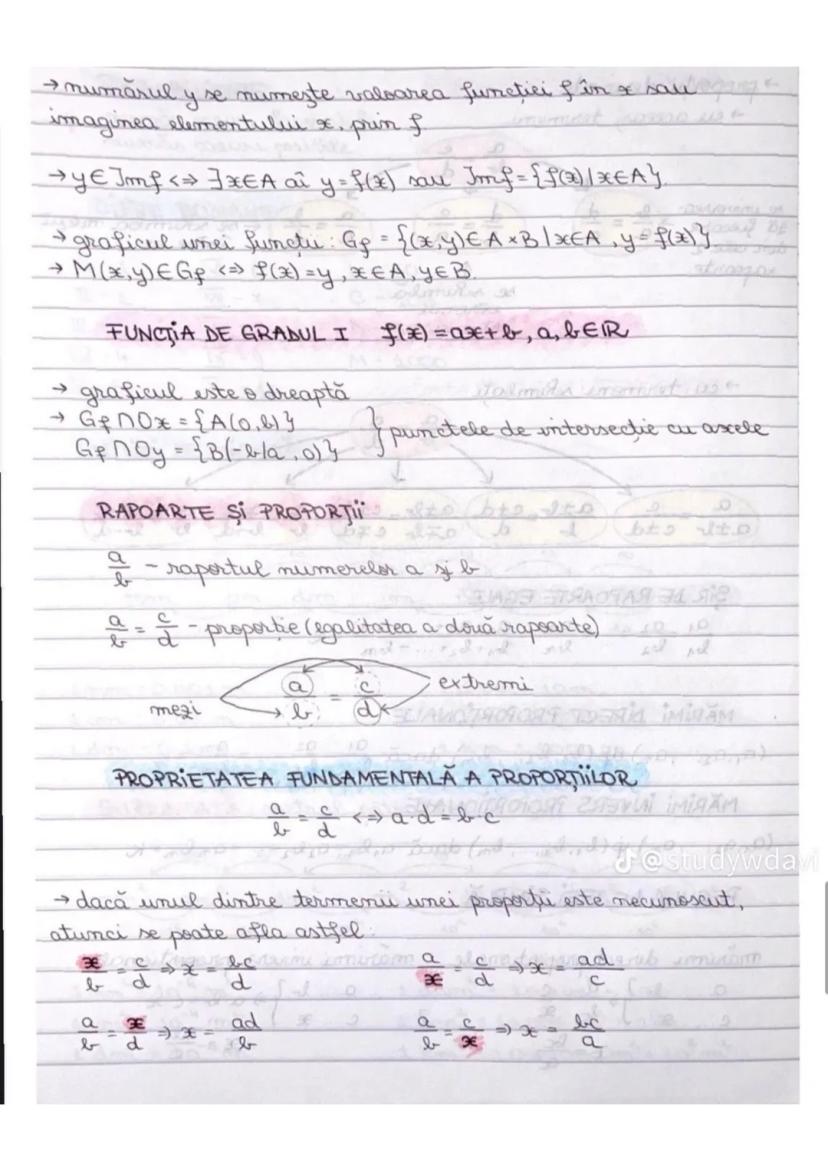 → numărul y se numește valoarea funcției f în x sau
imaginea elementului x, prin f
→ y∈Imf <=> ∃x∈A aî y=f(x) sau Imf={f(x)|x∈A}.
→ graficul unei funcții: Gf = {(x,y)∈A×B|x∈A, y=f(x)}
→ M(x,y)∈Gf <=> f(x)=y, x∈A, y∈B.
FUNCȚIA DE GRADUL I f(x)=ax+b, a,b∈ℝ
→ graficul este o dreaptă
→ Gf∩Ox = {A(0,b)}
Gf∩Oy = {B(-b/a, 0)} } punctele de intersecție cu axele
RAPOARTE ȘI PROPORȚII
a/b - raportul numerelor a și b
a/b = c/d - proporție (egalitatea a două rapoarte)
mezi a/b = c/d extremi
PROPRIETATEA FUNDAMENTALĂ A PROPORȚIILOR
a/b = c/d <=> a·d = b·c
@studywdavi
→ dacă unul dintre termenii unei proporții este necunoscut,
atunci se poate afla astfel:
x/b = c/d => x = bc/d a/x = c/d => x = ad/c
a/b = x/d => x = ad/b a/b = c/x => x = bc/a